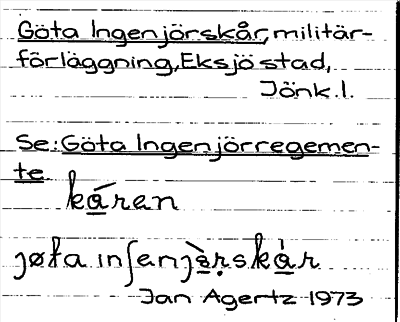 Göta Ingenjörskår, militär-
förläggning, Eksjö stad,
Jönk.l.
Se: Göta Ingenjörregemen-
te
kǻran
jøta inʃenjè̱ṛskå̀r
Jan Agertz 1973